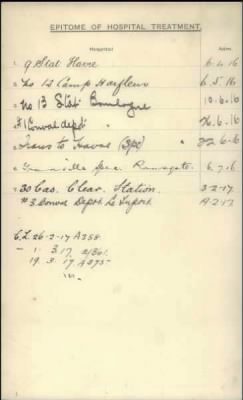 EPITOME OF HOSPITAL TREATMENT.
Hospital Adm.
1. 9 Stat Havre 6.4.16
2. No 12 Camp Harfleur 6.5.16
3. No 13 Stat. Boulogne 10.6.16
4. #1 Conval depot " 26.6.16
5. Trans to Havre
6. Granville Spec. Ramsgate. 6.7.16
7. 30 Cas. Clear. Station. 3.2.17
8. #3 Conval Depot Le Treport 19.2.17
C.L. 26-2-17 A258
- 1. 3.17
19. 3. 17. A275